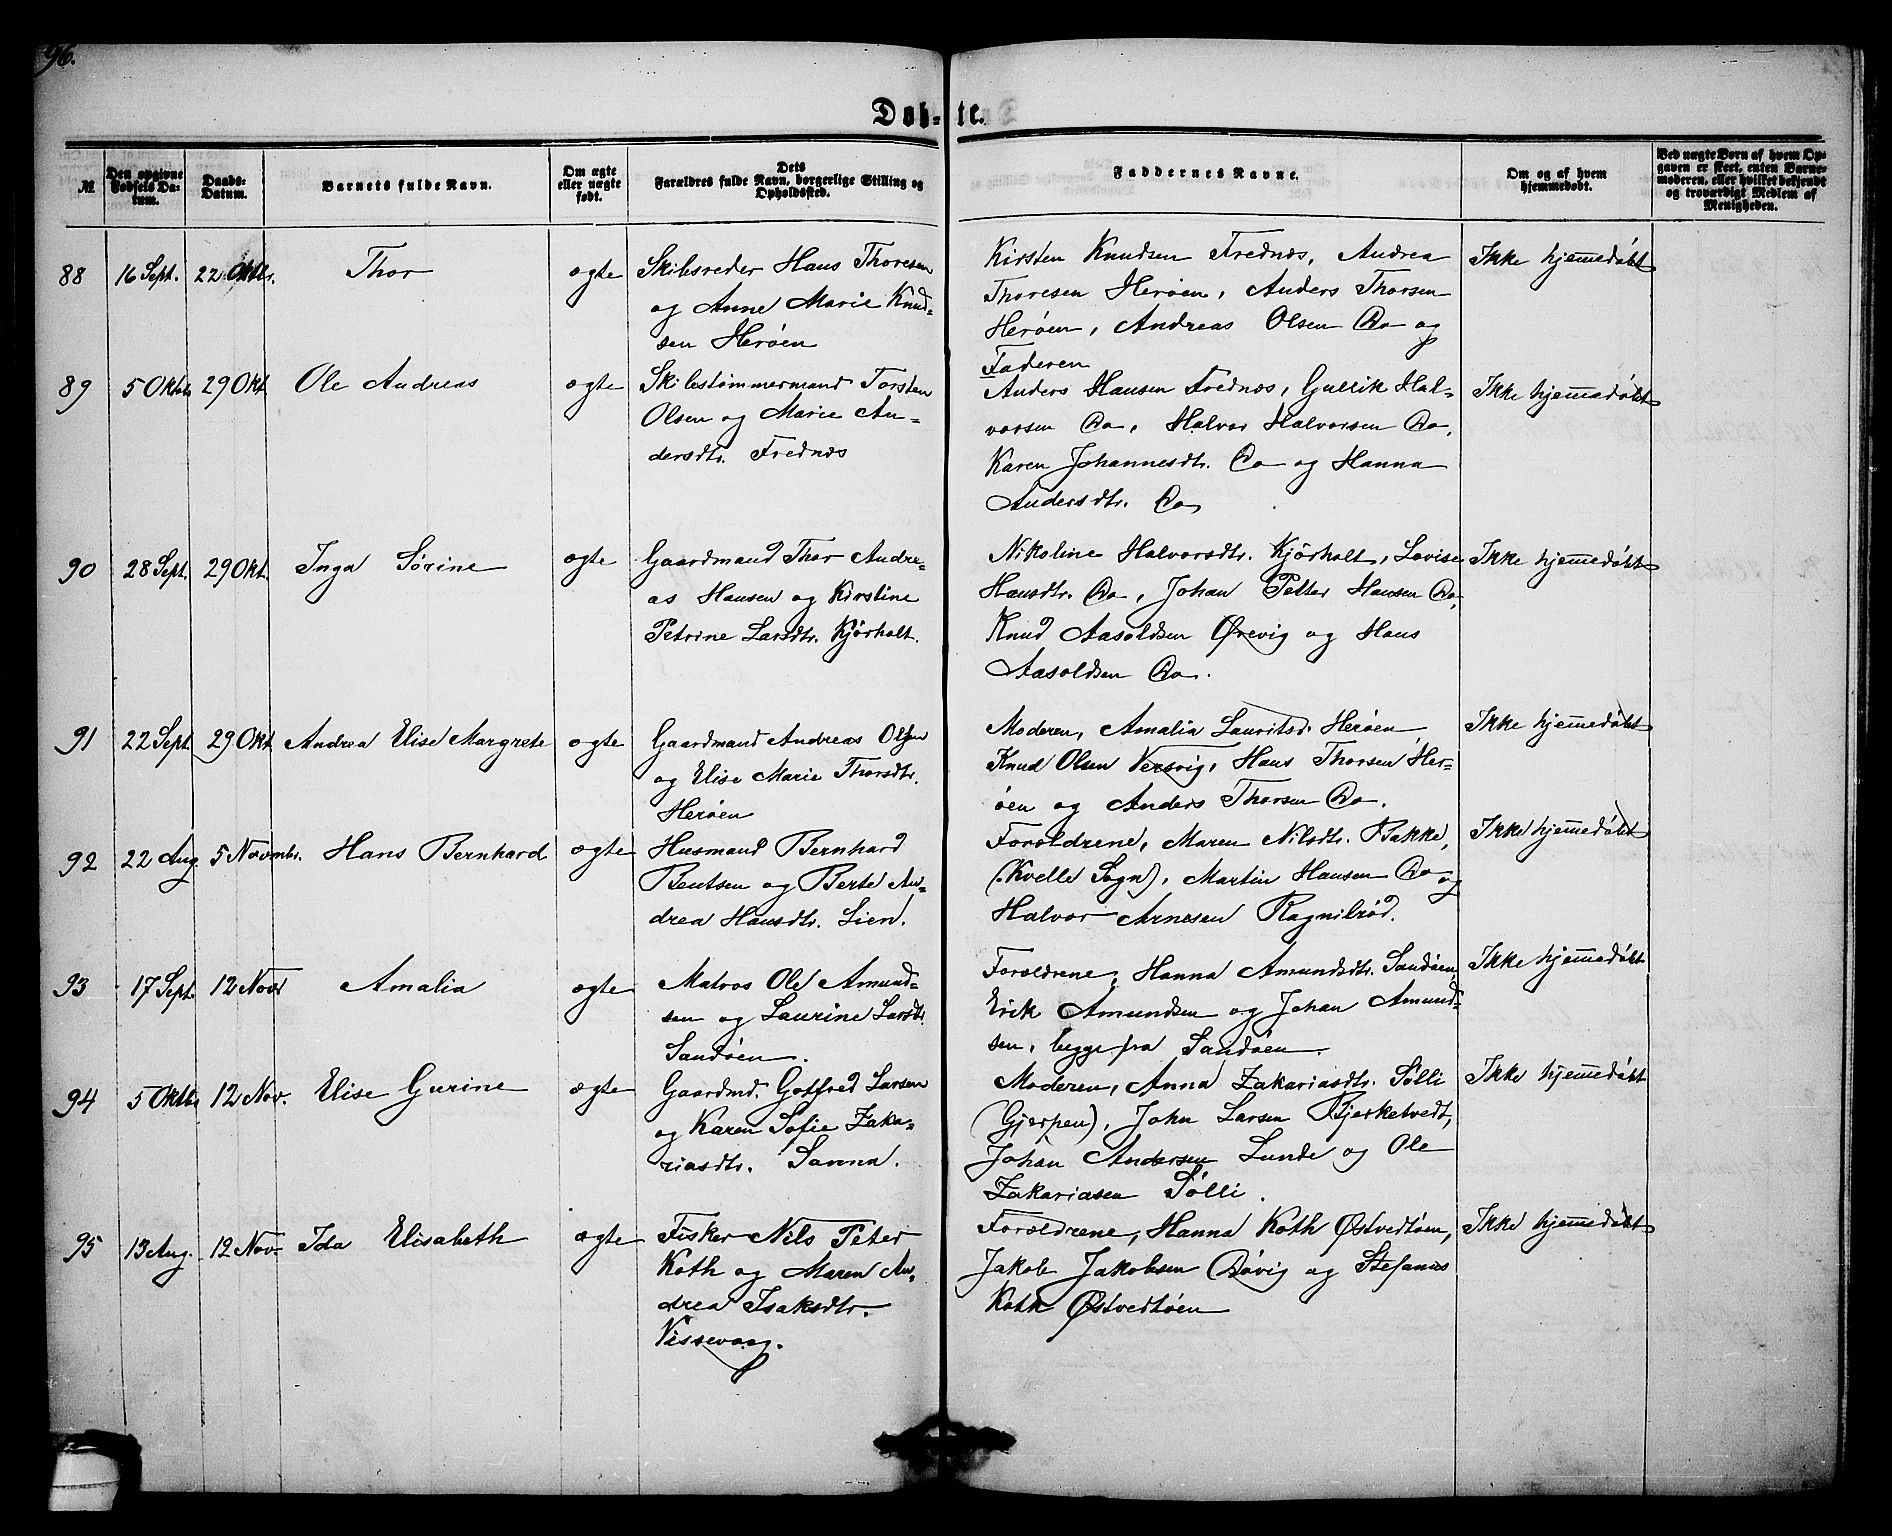 96.
Døbte.
№
Den opgivne Fødsels Datum.
Daabs-Datum.
Barnets fulde Navn.
Om ægte eller uægte født.
Dets Forældres fulde Navn, borgerlige Stilling og Opholdssted.
Faddernes Navne.
Om og af hvem hjemmedøbt.
Ved uægte Børn af hvem Opgaven er skeet, enten Barnemoderen, eller hvilket bekjendt og troværdigt Medlem af Menigheden.
88 16 Sept. 22 Oktbr. Thor ægte Skibsreder Hans Thoresen
og Anne Marie Knud-
sen Herøen
Kirsten Knudsen Frednæs, Andrea
Thoresen Herøen, Anders Thorsen
Herøen, Andreas Olsen Do og
Faderen
Ikke hjemedøbt
89 5 Oktb 29 Okt Ole Andreas ægte Skibstømmermand Torsten
Olsen og Marie An-
dersdtr. Frednæs
Anders Hansen Frednæs, Gullik Hal-
vorsen Do, Halvor Halvorsen Do,
Karen Johannesdtr. Do og Hanna
Andersdtr. Do
Ikke hjemedøbt
90 28 Sept. 29 Okt. Inga Sørine ægte Gaardmand Thor Andre-
as Hansen og Kirstine
Petrine Larsdtr. Kjørholt.
Nikoline Halvorsdtr. Kjørholt, Lovise
Hansdtr. Do, Johan Petter Hansen Do,
Knud Aasoldsen Ørevig og Hans
Aasoldsen Do.
Ikke hjemedøbt
91 22 Sept 29 Okt Andrea Elise Margrete ægte Gaardmand Andreas Olsen
og Elise Marie Thorsdtr.
Herøen
Moderen, Amalia Lauritsd. Herøen
Knud Olsen Versvig, Hans Thorsen Her-
øen og Anders Thorsen Do.
Ikke hjemedøbt
92 22 Aug. 5 Novmbr. Hans Bernhard ægte Husmand Bernhard
Bentsen og Berte An-
drea Hansdtr. Lien.
Forældrene, Maren Nilsdtr. Bakke,
(Kvelle Sogn), Martin Hansen Do og
Halvor Arnesen Ragnilrød.
Ikke hjemedøbt
93 17 Sept. 12 Novr Amalia ægte Matros Ole Amund-
sen og Laurine Larsdtr.
Sandøen.
Forældrene, Hanna Amundsdtr. Sandøen,
Erik Amundsen og Johan Amund-
sen, begge fra Sandøen.
Ikke hjemedøbt
94 5 Oktb 12 Nov. Elise Gurine ægte Gaardmd. Gotfred Larsen
og Karen Sofie Zaka-
riasdtr. Sanna.
Moderen, Anna Zakariasdtr. Sølli
(Gjerpen), John Larsen Bjerketvedt,
Johan Andersen Lunde og Ole
Zakariasen Sølli.
Ikke hjemedøbt
95 13 Aug. 12 Nov. Ida Elisabeth ægte Fisker Nils Peter
Koth og Maren An-
drea Isaksdtr.
Vissevaag.
Forældrene, Hanna Koth Østvedtøen,
Jakob Jakobsen Døvig og Stefanus
Koth Østvedtøen
Ikke hjemedøbt